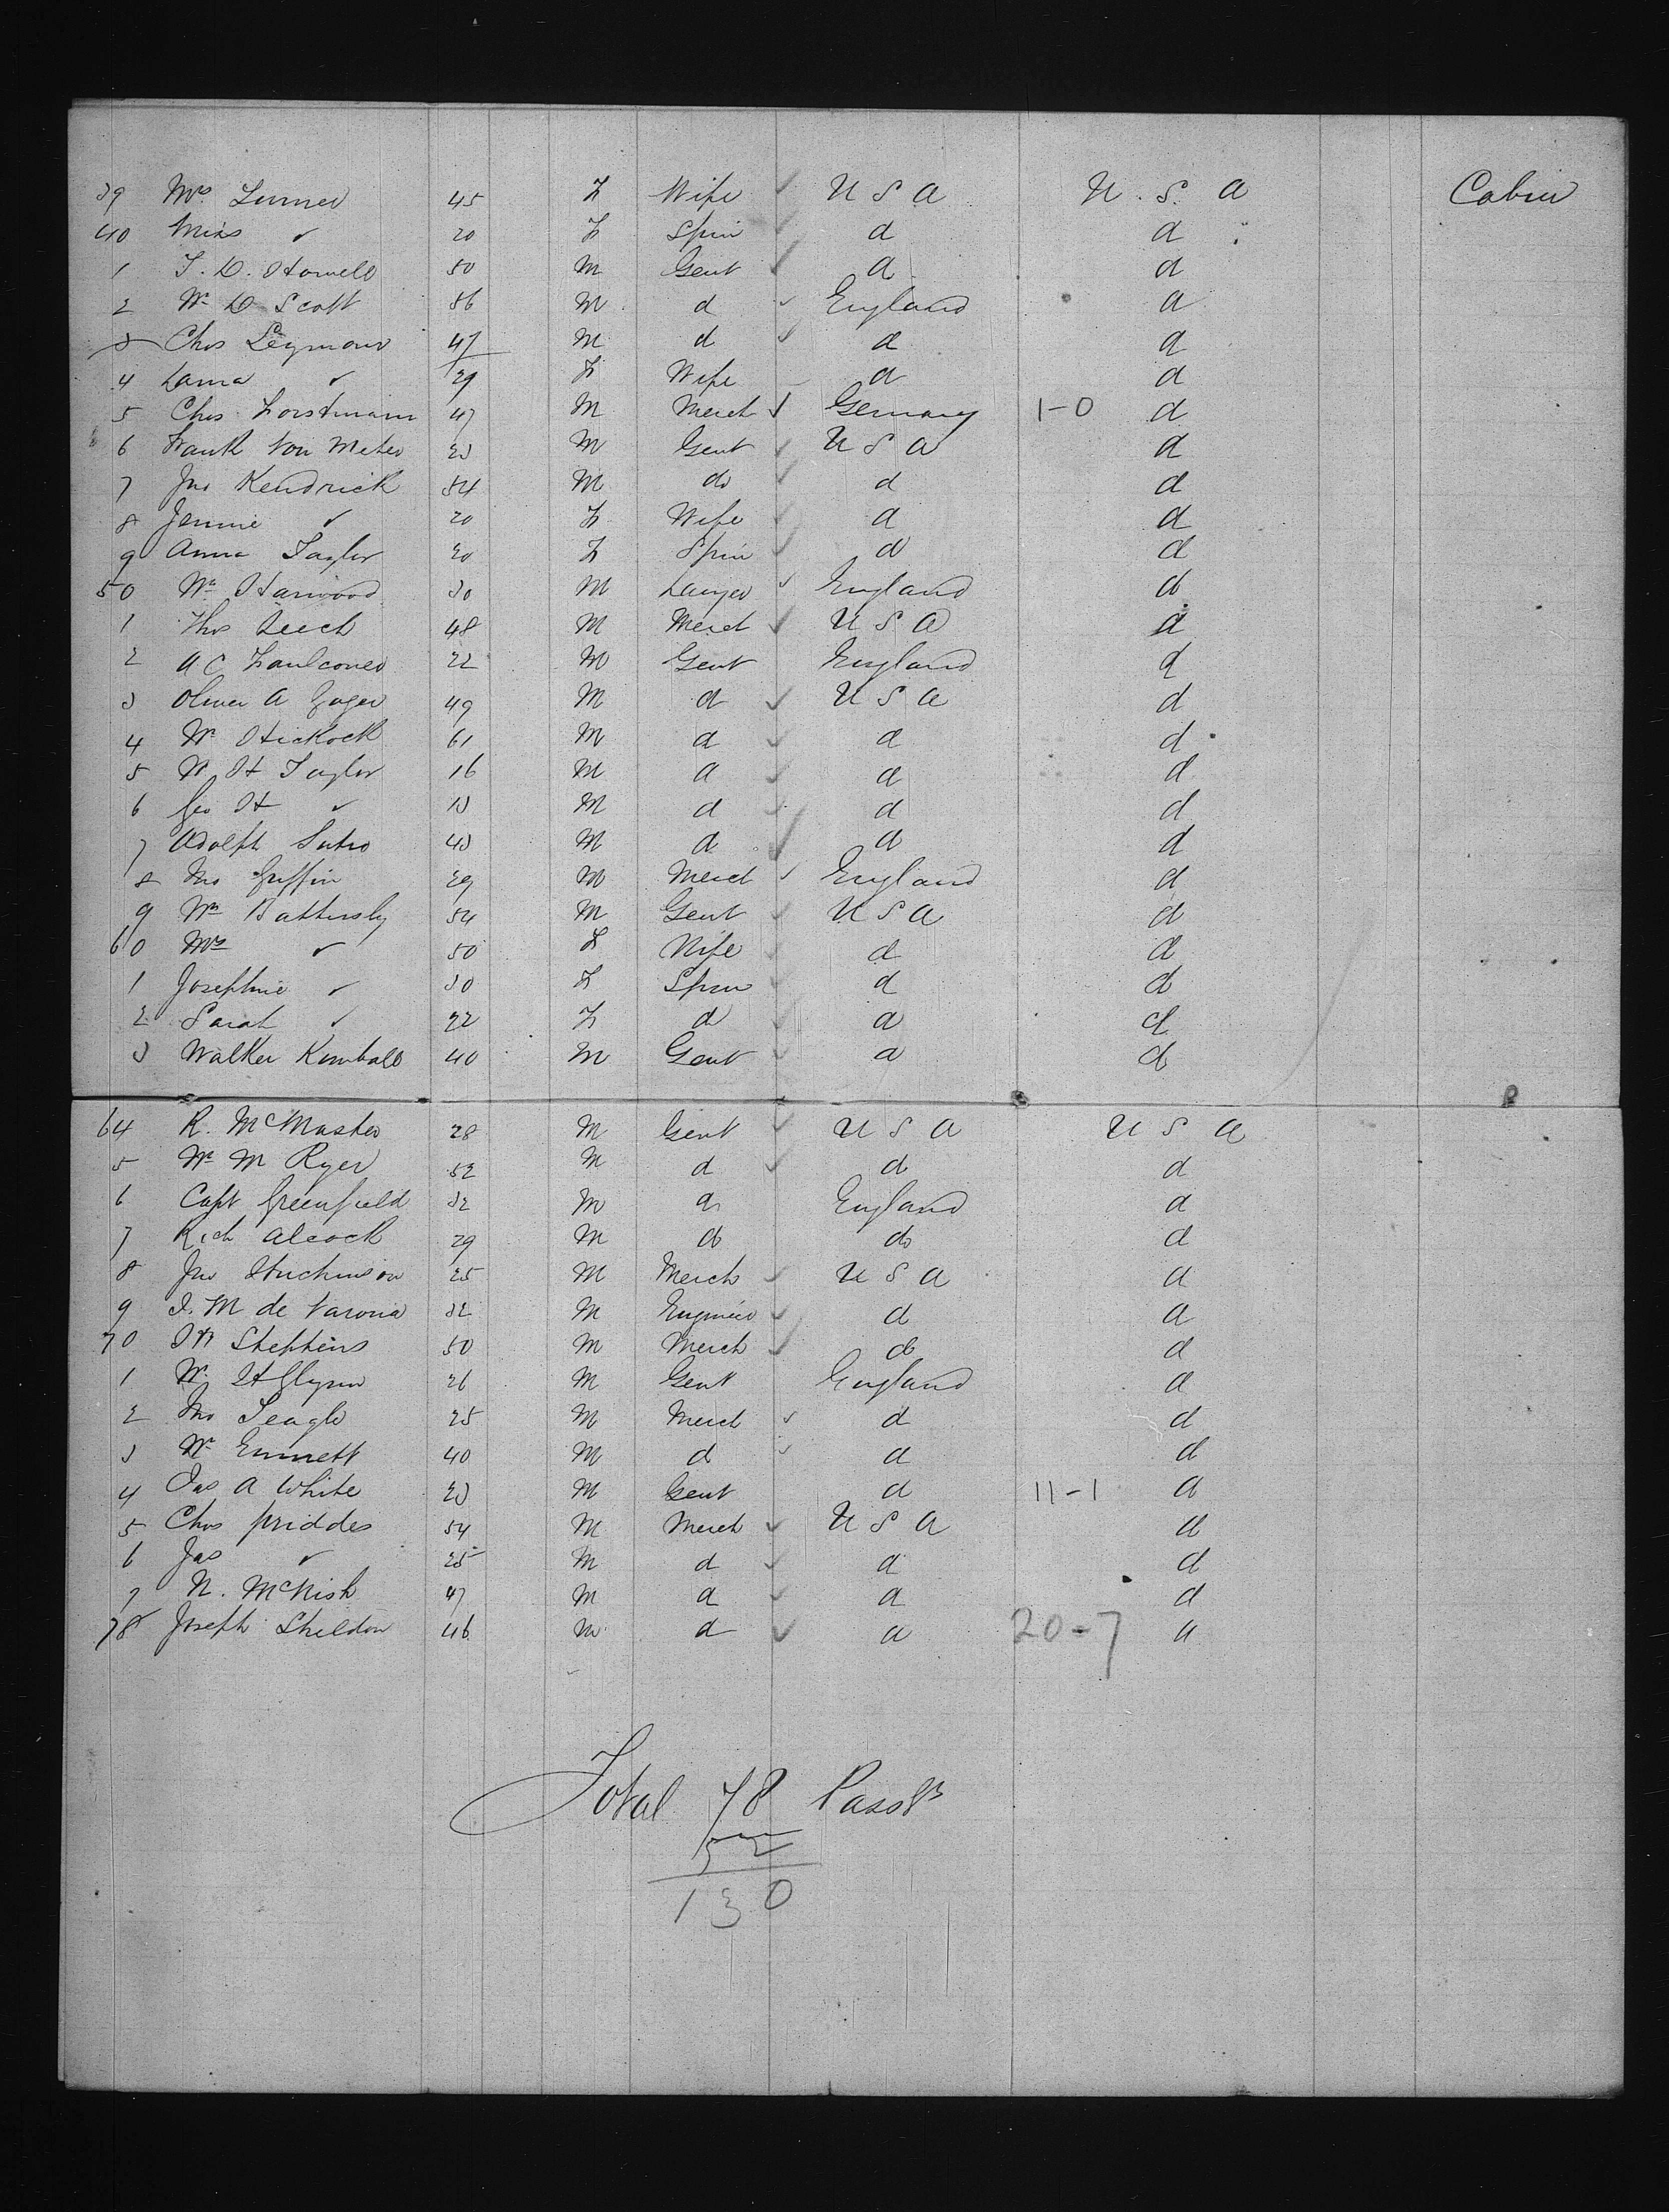 39 Mrs Turner 45 F Wife ✓ U S A U. S. A Cabin
40 Miss ✓ 20 F Spin ✓ d d
1 T. D. Howell 50 M Gent ✓ d d
2 Wm D Scott 56 M d ✓ England d
3 Chas Seymour 47 M d ✓ d d
4 Laura ✓ 29 F Wife d d
5 Chas Forstmann 47 M Merch ✓ Germany 1-0 d
6 Frank Von Meter 23 M Gent ✓ U S A d
7 Jno Kendrick 54 M do ✓ d d
8 Jennie ✓ 20 F Wife ✓ d d
9 Anna Taylor 20 F Spin ✓ d d
50 Wm Harwood 30 M Lawyer ✓ England d
1 Thos Leech 48 M Merch ✓ U S A d
2 A C Faulconer 22 M Gent England d
3 Oliver A 49 M d ✓ U S A d
4 Wm Hickock 61 M d ✓ d d
5 W H Taylor 16 M d ✓ d d
6 Geo H ✓ 13 M d ✓ d d
7 Adolph Sutro 43 M d ✓ d d
8 Jno Griffin 29 M Merch ✓ England d
9 Wm Battersby 54 M Gent ✓ U S A d
60 Mrs ✓ 50 F Wife ✓ d d
1 Josephine ✓ 30 F Spin ✓ d d
2 Sarah ✓ 22 F d ✓ d d
3 Walker Kimball 40 M Gent ✓ d d
64 R. McMaster 28 M Gent ✓ U S A U S A
5 Wm M Ryer 52 M d ✓ d d
6 Capt Greenfield 32 M d England d
7 Rich Alcock 29 M do do d
8 Jno Hutchinson 25 M Merch ✓ U S A d
9 I. M de Varona 32 M Engineer ✓ d d
70 Stephens 50 M Merch ✓ do d
1 Wm St Glynn 26 M Gent England d
2 Jno Teagle 25 M Merch ✓ d d
3 Wm Emmett 40 M d ✓ d d
4 Jas A White 23 M Gent d 11-1 d
5 Chas Priddes 54 M Merch ✓ U S A d
6 Jas ✓ 25 M d ✓ d d
7 N. McNish 47 M d ✓ d d
78 Joseph Sheldon 46 M d ✓ d 20-7 d
Total 78 Passgrs
52
130